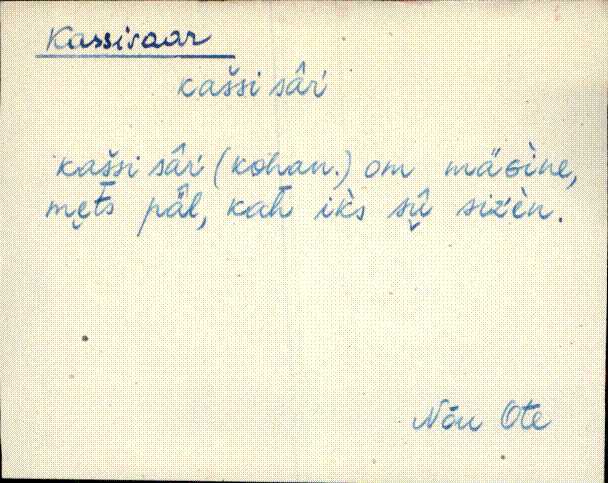 Kassisaar
kašsi sâŕ
kašsi sâŕ (kohan.) om mäɢìne,
męt̄s päl, kat̄ ik̀s sū̬̂ sizèn.
Nõu Ote